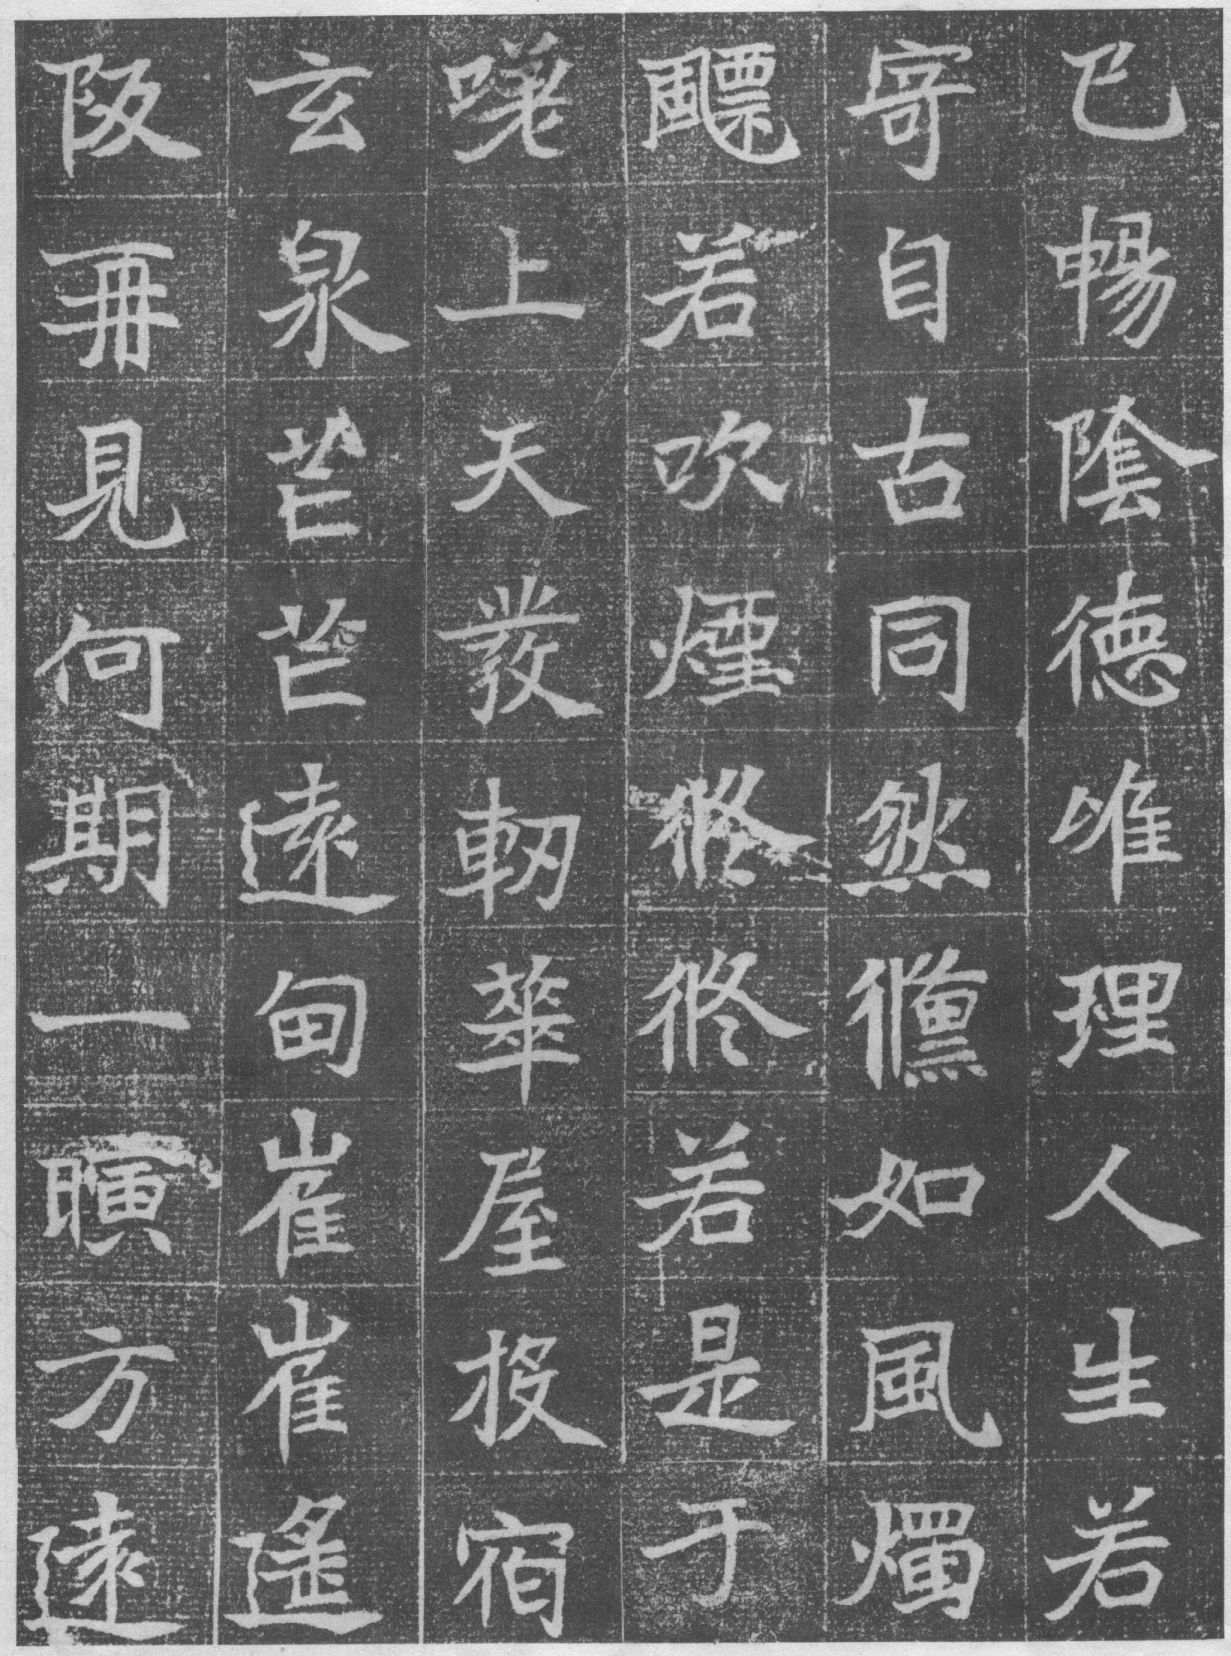 已暢陰德唯理人生若
寄自古同然儵如風燭
飃若吹煙若是于
嘆上天發軔華屋投宿
玄泉芒芒遠甸崔崔遙
阪再見何期一暝方遠